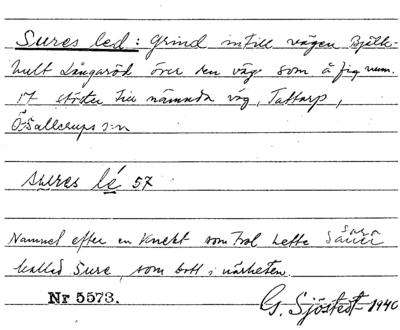 Sures led: Grind intill vägen Bjälk-
hult Långaröd över den väg som å fig num.
17 stöter till nämnda väg, Tattarp,
Ö. Sallerups s:n
sures lé 57
Namnet efter en knekt som hette
kallad Sure, som bott i närheten.
Nr 5573.
G. Sjöstedt 1940